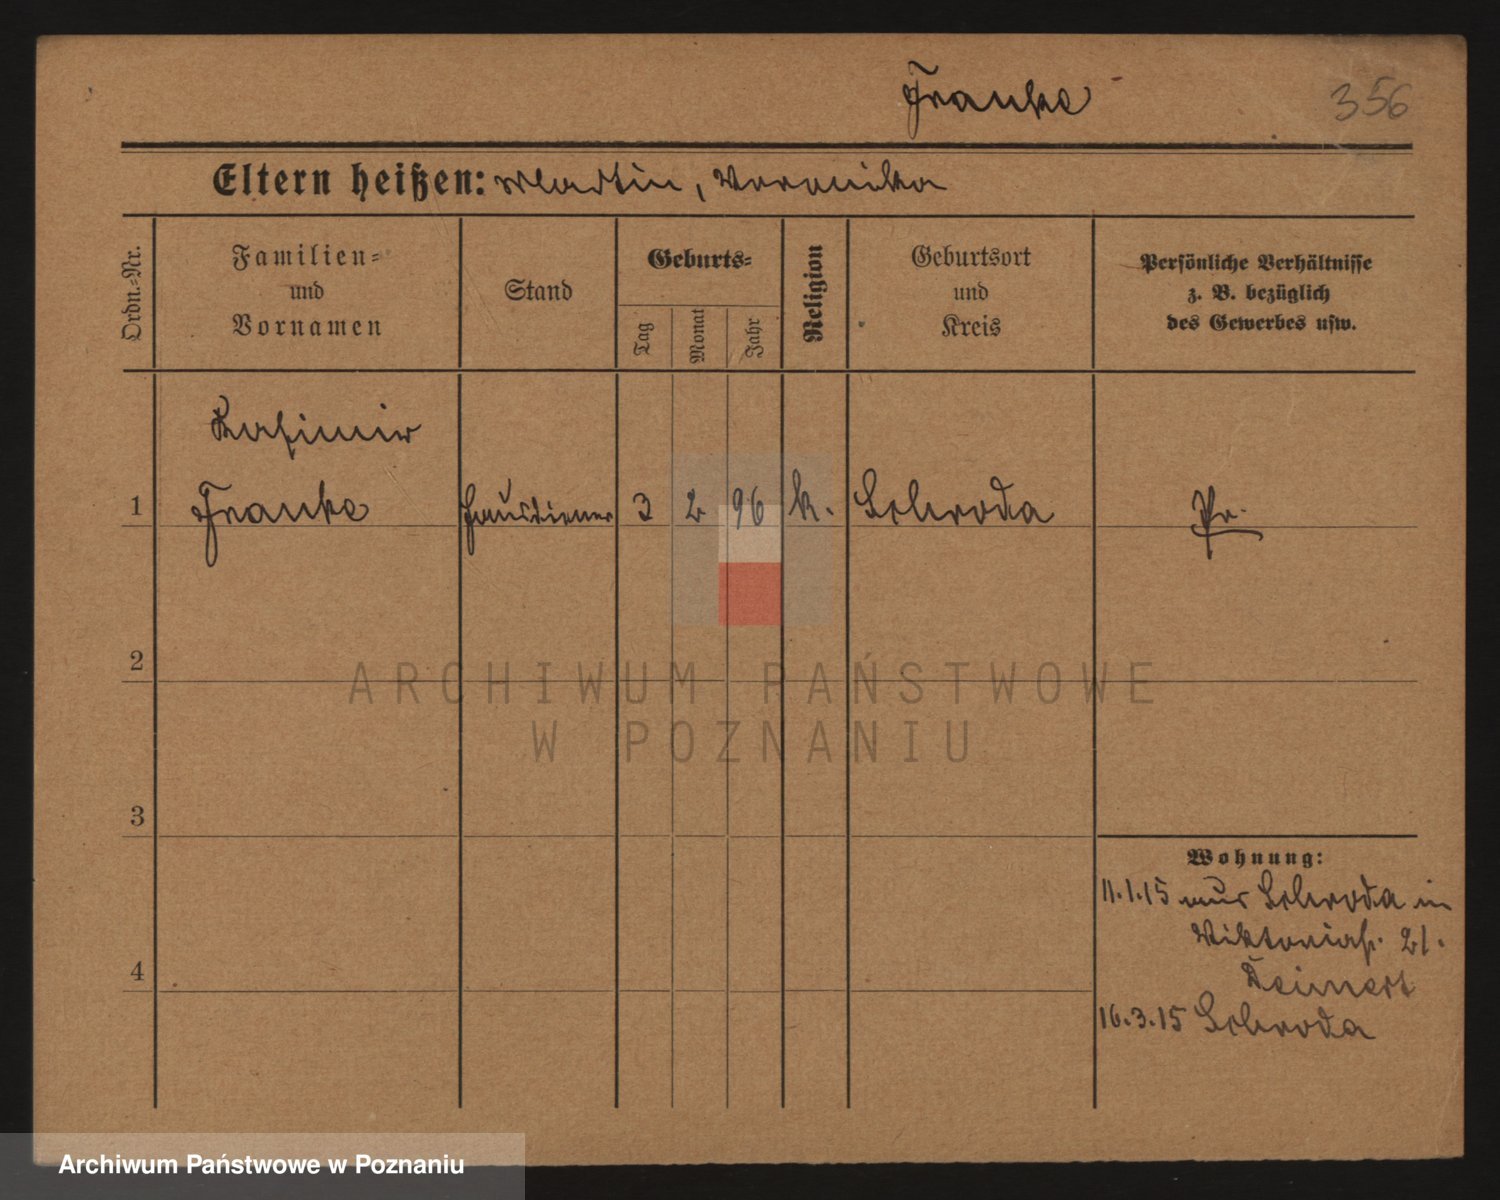 Franke
356
Eltern heißen: Martin, Veronika
Ordn.-Nr.
Familien- und Vornamen
Stand
Geburts-
Tag
Monat
Jahr
Religion
Geburtsort und Kreis
Persönliche Verhältnisse
z. B. bezüglich
des Gewerbes usw.
Kasimir
1 Franke Hausdiener 3 2 96 k. Schroda Pr.
2
3
4
Wohnung:
11.1.15 aus Schroda in
Viktoriastr. 21.
16.3.15 Schroda
ARCHIWUM PAŃSTWOWE
W POZNANIU
Archiwum Państwowe w Poznaniu